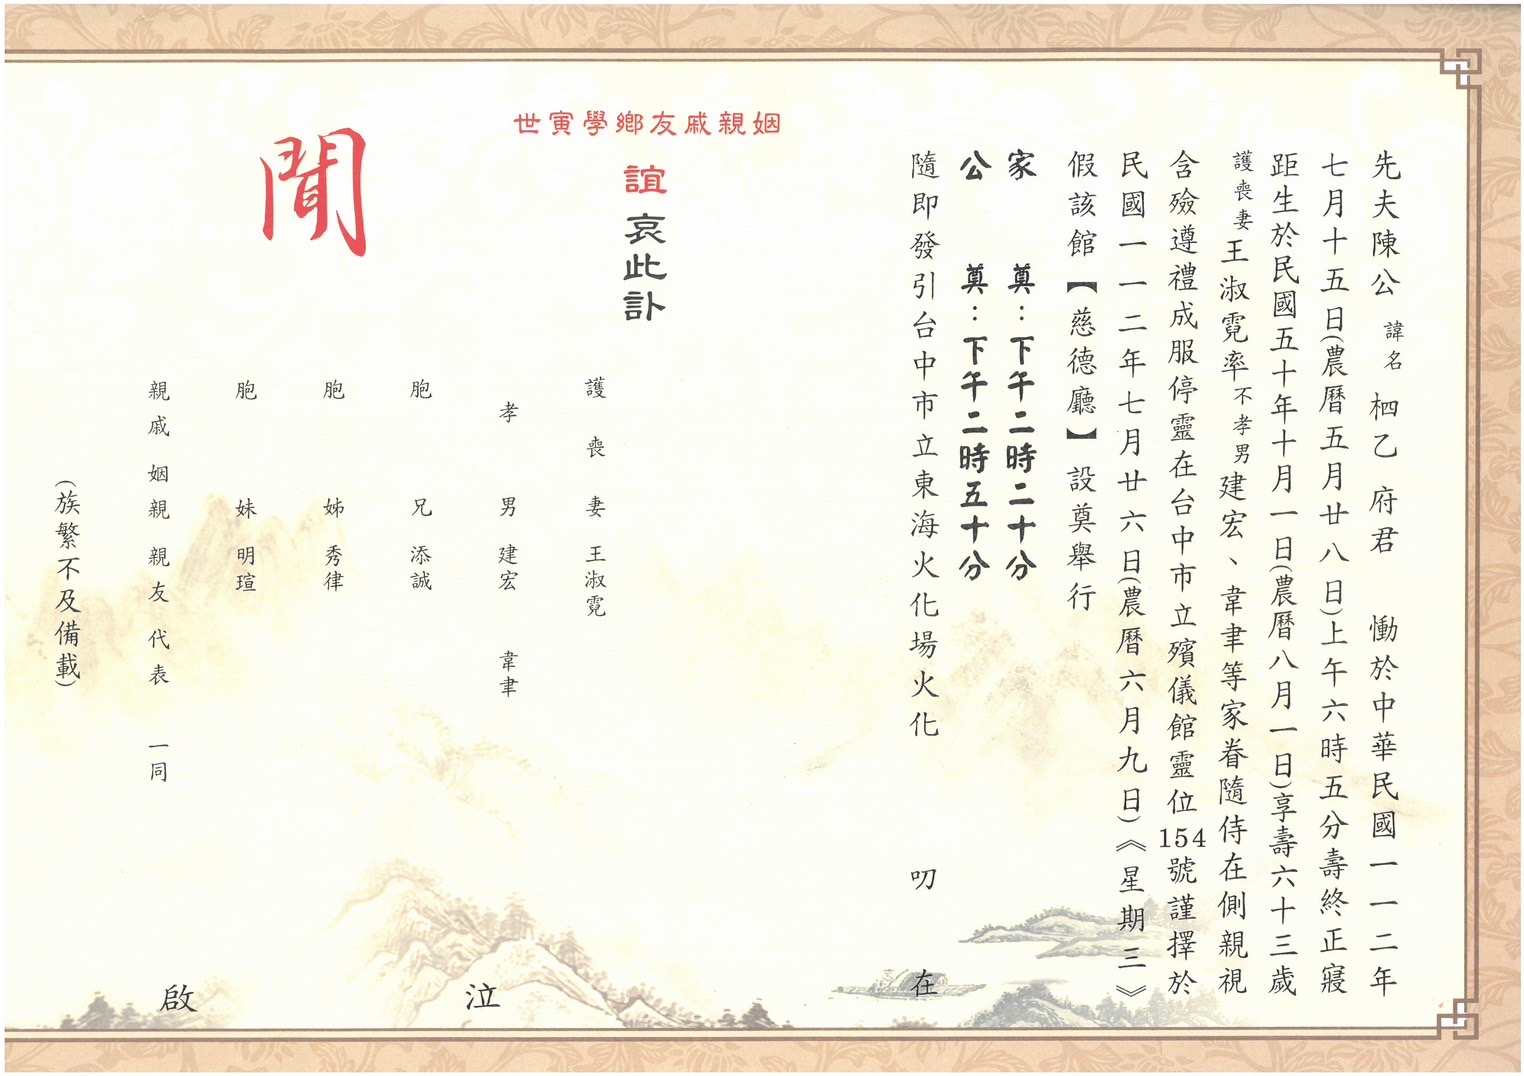 先夫陳公諱名栖乙府君 慟於中華民國一一二年
七月十五日(農曆五月廿八日)上午六時五分壽終正寢
距生於民國五十年十月一日(農曆八月一日)享壽六十三歲
護喪妻王淑霓率不孝男建宏、韋聿等家眷隨侍在側親視
含殮遵禮成服停靈在台中市立殯儀館靈位154號謹擇於
民國一一二年七月廿六日(農曆六月九日)《星期三》
假該館【慈德廳】設奠舉行
家 奠:下午二時二十分
公 奠:下午二時五十分
隨即發引台中市立東海火化場火化 叨 在
世寅學鄉友戚親姻
誼哀此訃
聞
護喪妻 王淑霓
孝男 建宏 韋聿
胞兄 添誠
胞姊 秀律
胞妹 明瑄
親戚姻親親友代表 一同
(族繁不及備載)
泣
啟